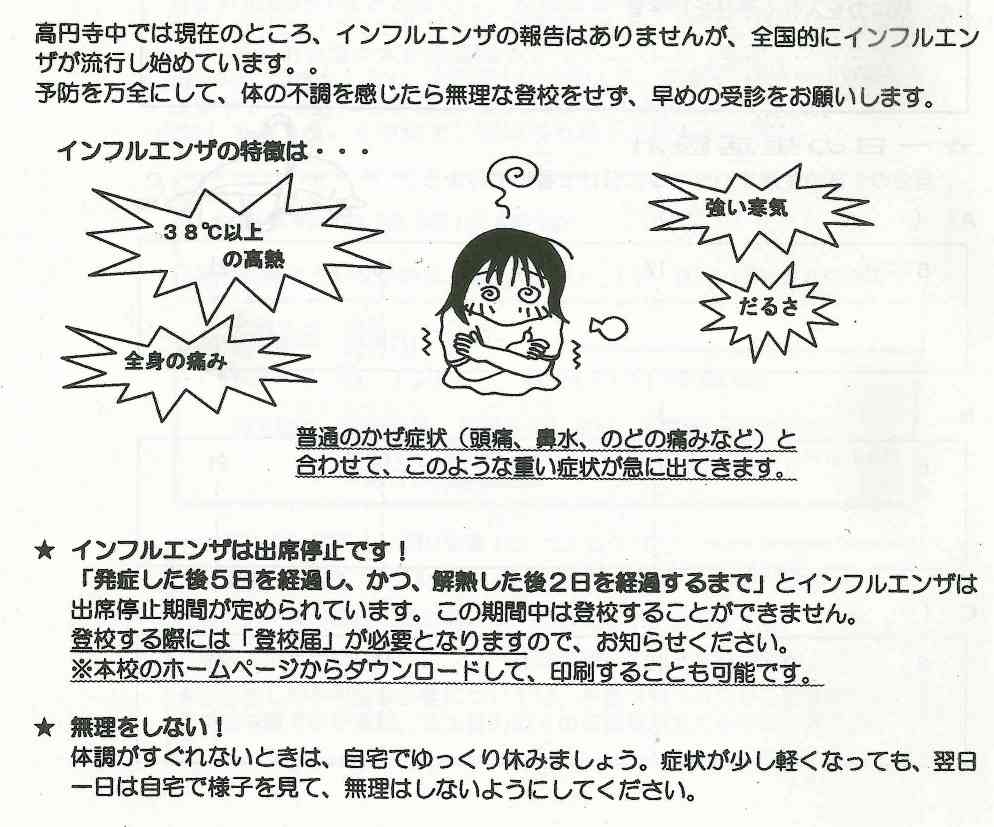 高円寺中では現在のところ、インフルエンザの報告はありませんが、全国的にインフルエン
ザが流行し始めています。。
予防を万全にして、体の不調を感じたら無理な登校をせず、早めの受診をお願いします。
インフルエンザの特徴は・・・
38℃以上
の高熱
強い寒気
だるさ
全身の痛み
普通のかぜ症状（頭痛、鼻水、のどの痛みなど）と
合わせて、このような重い症状が急に出てきます。
★ インフルエンザは出席停止です！
「発症した後5日を経過し、かつ、解熱した後2日を経過するまで」とインフルエンザは
出席停止期間が定められています。この期間中は登校することができません。
登校する際には「登校届」が必要となりますので、お知らせください。
※本校のホームページからダウンロードして、印刷することも可能です。
★ 無理をしない！
体調がすぐれないときは、自宅でゆっくり休みましょう。症状が少し軽くなっても、翌日
一日は自宅で様子を見て、無理はしないようにしてください。